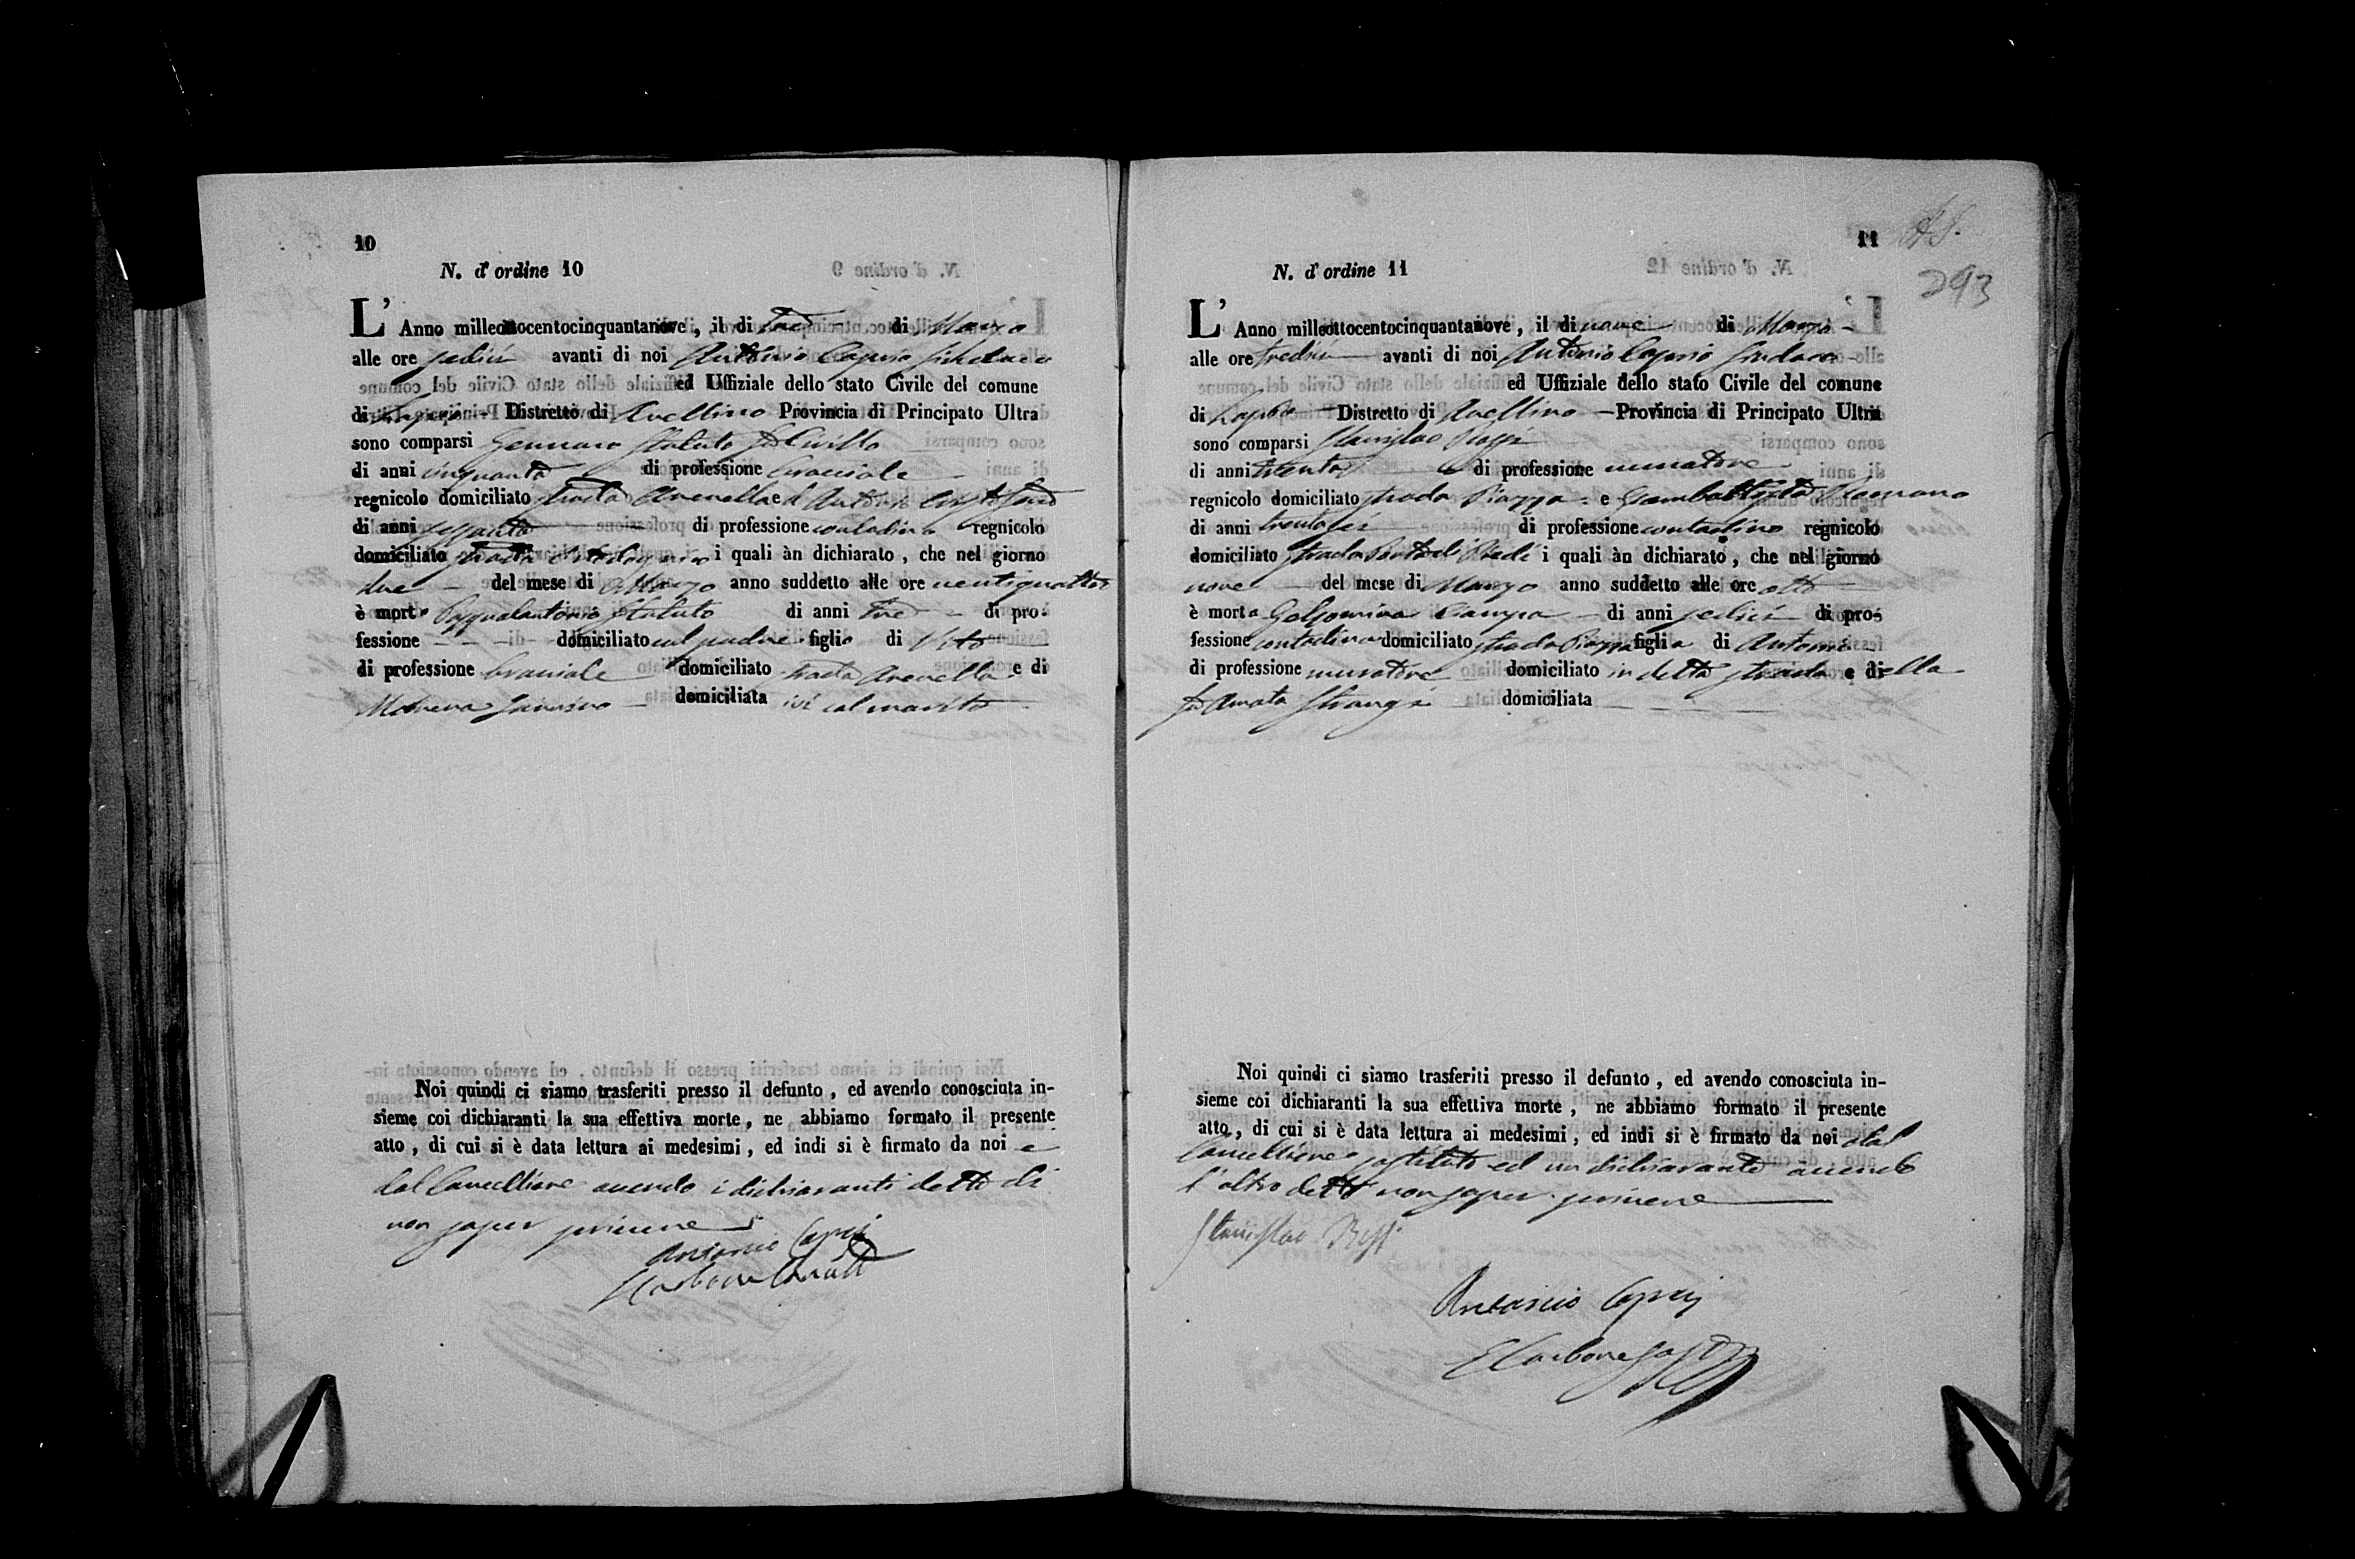 10
N. d' ordine 10
L' Anno milleottocentocinquantanove, il di tre di Marzo
alle ore sedici avanti di noi Antonio Caprio Sindaco
ed Uffiziale dello stato Civile del comune
di Distretto di Avellino Provincia di Principato Ultra
sono comparsi Gennaro Staluto
di anni cinquanta di professione bracciale
regnicolo domiciliato strada
di anni sessanta di professione contadino regnicolo
domiciliato strada i quali àn dichiarato, che nel giorno
due del mese di Marzo anno suddetto alle ore ventiquattro
è morto Pasqualantonio Staluto di anni tre di pro-
fessione domiciliato col padre figlio di Vito
di professione bracciale domiciliato strada e di
domiciliata ivi col marito
Noi quindi ci siamo trasferiti presso il defunto, ed avendo conosciuta in-
sieme coi dichiaranti la sua effettiva morte, ne abbiamo formato il presente
atto, di cui si è data lettura ai medesimi, ed indi si è firmato da noi e
dal Cancelliere avendo i dichiaranti detto di
non saper scrivere
Antonio Caprio
11
293
N. d' ordine 11
L' Anno milleottocentocinquantanove, il di nove di Marzo
alle ore tredici avanti di noi Antonio Caprio Sindaco
ed Uffiziale dello stato Civile del comune
di Distretto di Avellino Provincia di Principato Ultra
sono comparsi Stanislao
di anni trenta di professione muratore
regnicolo domiciliato strada Piazza e Giambattista Romano
di anni trentasei di professione contadino regnicolo
domiciliato strada i quali àn dichiarato, che nel giorno
nove del mese di Marzo anno suddetto alle ore otto
è morta Gelsomina Ciampa di anni sedici di pro-
fessione contadina domiciliato strada Piazza figlia di Antonio
di professione muratore domiciliato in detta strada e di ella
fu Amata domiciliata
Noi quindi ci siamo trasferiti presso il defunto, ed avendo conosciuta in-
sieme coi dichiaranti la sua effettiva morte, ne abbiamo formato il presente
atto, di cui si è data lettura ai medesimi, ed indi si è firmato da noi dal
Cancelliere sostituto ed un dichiarante avendo
l'altro detto non saper scrivere
Stanislao
Antonio Caprio